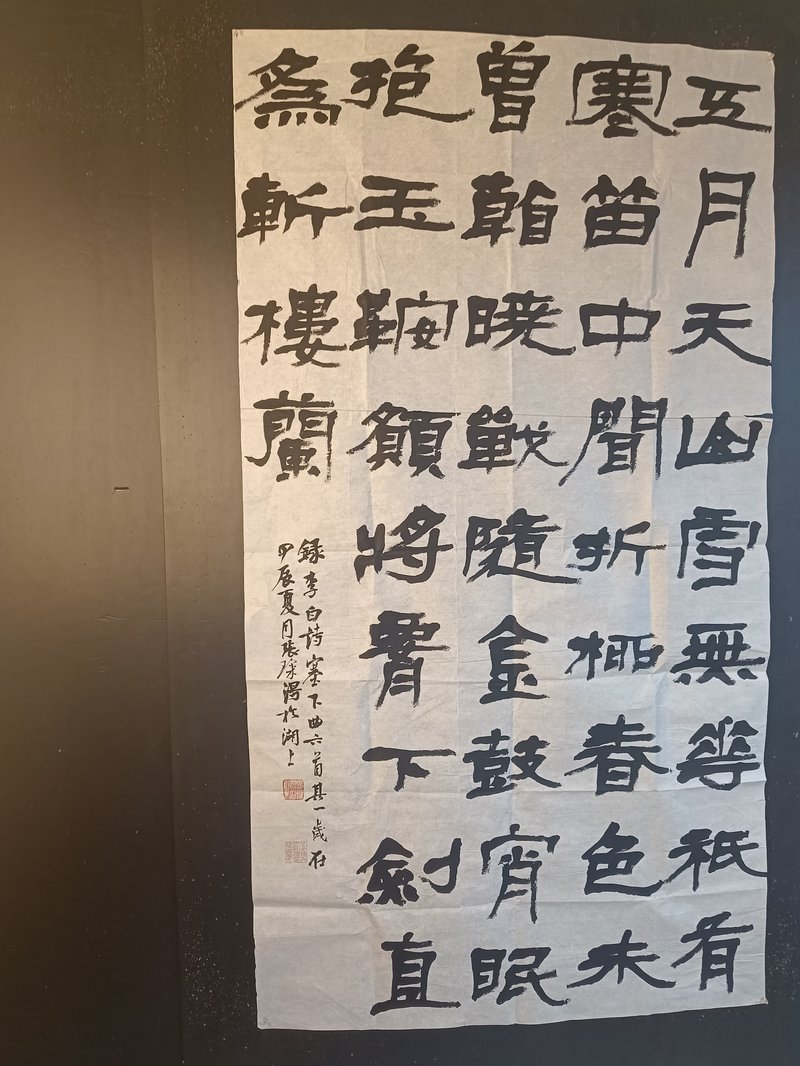 五月天山雪無花祇有
寒笛中聞折柳春色未
曾看曉戰隨金鼓宵眠
抱玉鞍願將腰下劍直
為斬樓蘭
録李白詩塞下曲六首其一歲在
甲辰夏月張於湖上